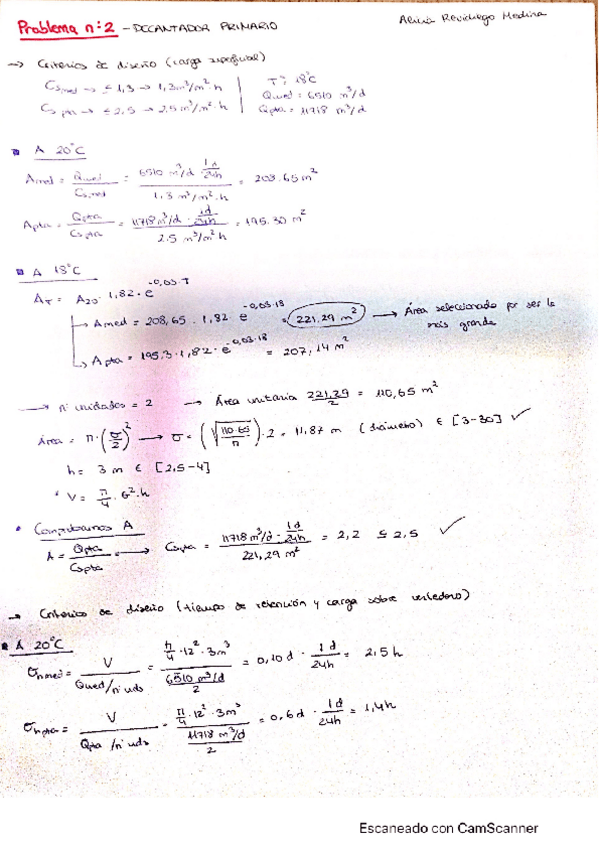 Problema nº 2 - DECANTADOR PRIMARIO
Alicia Revidiego Medina
→ Criterios de diseño (carga superficial)
Cs med → ≤ 1,3 → 1,3 m³/m²·h
Cs pta → ≤ 2,5 → 2.5 m³/m²·h
Tª: 18°C
Qmed = 6510 m³/d
Qpta = 11718 m³/d
A 20°C
Amed = Qmed / Cs,med = 6510 m³/d · 1d/24h / 1.3 m³/m²·h = 208.65 m²
Apta = Qpta / Cs,pta = 11718 m³/d · 1d/24h / 2.5 m³/m²·h = 195.30 m²
A 18°C
A_T = A₂₀ · 1,82 · e^(-0,03·T)
→ Amed = 208,65 · 1,82 e^(-0,03·18) = 221,29 m² → Área seleccionada por ser la
más grande
→ Apta = 195.3 · 1,82 · e^(-0,03·18) = 207,14 m²
→ nº unidades = 2 → Área unitaria 221,29/2 = 110,65 m²
Área = π · (σ/2)² → σ = (√(110.65/π)) · 2 = 11,87 m (diámetro) ∈ [3-30] ✓
h = 3 m ∈ [2,5-4]
V = π/4 · σ² · h
• Comprobamos A
A = Qpta / Cspta → Cspta = 11718 m³/d · 1d/24h / 221,29 m² = 2,2 ≤ 2,5 ✓
→ Criterios de diseño (tiempo de retención y carga sobre vertedero)
A 20°C
σh med = V / Qmed/nº uds = π/4 · 12² · 3 m³ / 6510 m³/d / 2 = 0,10 d · 1d/24h = 2,5 h
σh pta = V / Qpta/nº uds = π/4 · 12² · 3 m³ / 11718 m³/d / 2 = 0,6 d · 1d/24h = 1,4h
Escaneado con CamScanner